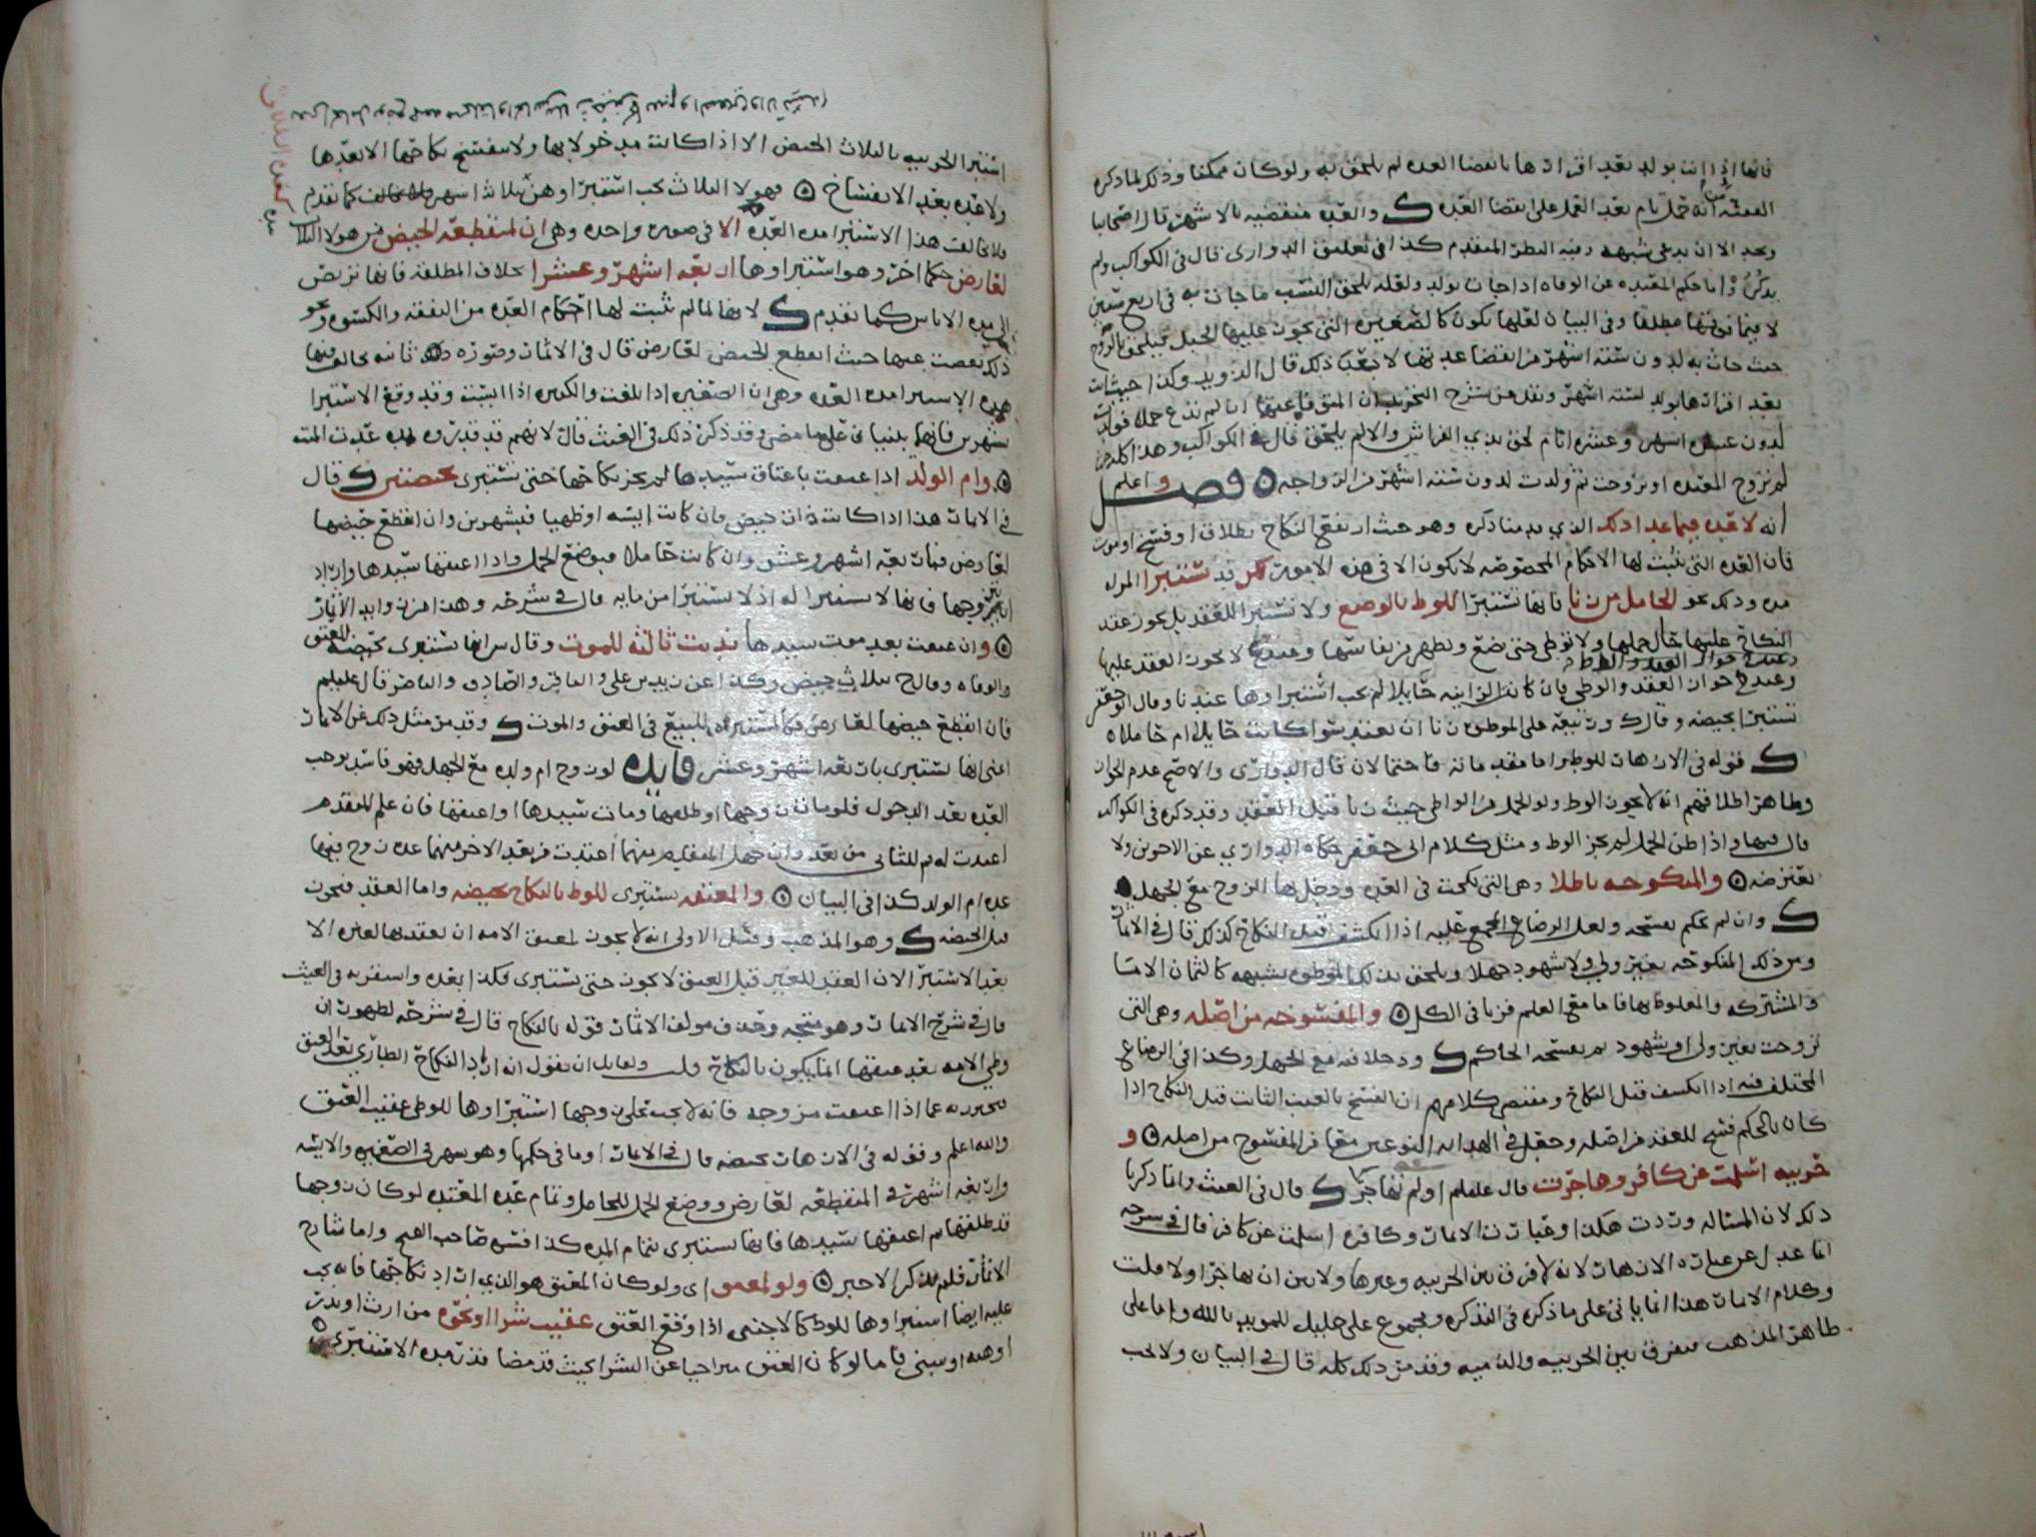 فانها اذا اتت بولد بعد اقرارها بانقضا العده لم يلحق به ولو كان ممكنا وذلك لما ذكره
الفقيه انه حمل تام بعد العمل على انقضا العده ک والعده منقضيه بالاشهر قال اصحابنا
وبحد الا ان يدعي شبهه وفيه النظر المتقدم كذا في تعليق الدواري قال في الكواكب ولم
يذكروا ما حكم المعتده عن الوفاه اذا جات بولد ولعله يلحق النسب ما جات به في اربع سنين
لا فيما فوقها مطلقا وفي البيان لعلها تكون كالصغيره التي يجوز عليها الحبل فيلحق بالزوج
حيث جات به لدون سته اشهر من انقضا عدتها لا بعد ذلك قال الدويد وكذا حيث اتت
بعد اقرارها بولد لسته اشهر
لدون عشره اشهر وعشره ايام لحق بذي الفراش والا لم يلحق قال في الكواكب وهذا كله حيث
لم تزوج المعتده او تزوجت ثم ولدت لدون سته اشهر من الزواجه ه فصل واعلم
انه لا عده فيما عدا ذلك الذي قدمنا ذكره وهو حيث ارتفع النكاح بطلاق او فسخ او موت
فان العده التي تثبت لها الاحكام المخصوصه لا تكون الا في هذه الامور لكن قد تستبرا المراه
مده وذلك نحو الحامل من زنا فانها تستبرا للوطء بالوضع ولا تستبرا للعقد بل يجوز عقد
النكاح عليها حال حملها ولا توطى حتى تضع وتطهر من نفاسها وعند ع لا يجوز العقد عليها
وعند ح جواز العقد والوطي فان كانت الزانيه حايلا لم يجب استبراوها عندنا وقال ابو جعفر
تستبرا بحيضه وقال ک وربيعه على الموطوه زنا ان تعتد سوا كانت حايلا ام حاملا ه
ک قوله في الازهار للوطء اما مقدماته فاحتمالان قال الدواري والاصح عدم الجواز
وظاهر اطلاقهم انه لا يجوز الوطء ولو الحمل من الواطي حيث زنا قبل العقد وقد ذكره في الكواكب
قال فيها واذا ظن الحمل لم يجز الوطء ومثل كلام ابي جعفر حكاه الدواري عن الاخوين ولا
يعترضه ه والمنكوحه باطلا وهي التي نكحت في العده ودخل بها الزوج مع الجهل
ک وان لم يحكم بفسخه ولعل الرضاع المجمع عليه اذا انكشف قبل النكاح كذلك قال في الاثمار
ومن ذلك المنكوحه بغير ولي ولا شهود جهلا ويلحق بذلك الموطوه بشبهه كالثمان الاما
والمشتركه والمغلوط بها فاما مع العلم فزنا في الكل ه والمفسوخه من اصله وهي التي
تزوجت بغير ولي او شهود ثم يفسخه الحاكم ک ودخلا فيه مع الجهل وكذا في الرضاع
المختلف فيه اذا انكشف قبل النكاح ومقتضى كلامهم ان الفسخ بالعيب الثابت قبل النكاح اذا
كان بالحكم فسخ للعقد من اصله وجعل في الهدايه النوعين معا من المفسوخ من اصله ه و
حربيه اسلمت عن كافر وهاجرت قال عليلم او لم تهاجر ک قال في الغيث وانما ذكرنا
ذلك لان المساله وردت هكذا وعبارت الاثمار وكافره اسلمت عن كافر قال في شرحه
انما عدل عن عباره الازهار لانه لا فرق بين الحربيه وغيرها ولا بين ان يهاجرا ولا قلت
وكلام الاثمار هذا انما ياتي على ما ذكره في التذكره ومجموع علي خليل للمويد بالله واما على
ظاهر المذهب فيفرق بين الحربيه والذميه وقد مر ذلك كله قال في البيان ولا يجب
استبرا الحربيه بالثلاث الحيض الا اذا كانت مدخولا بها ولا ينفسخ نكاحها الا بعدها
ولا عده بعد الانفساخ ه فهولا الثلاث يجب استبراوهن بثلاث كما تقدم
فلا يخالف هذا الاستبرا مده العده الا في صوره واحده وهي ان لمنقطعه الحيض من هولا الثلاث
لعارض حكما اخر وهو استبراوها اربعه اشهر وعشرا بخلاف المطلقه فانها تربص
الى مده الاياس كما تقدم ک لانها لما لم تثبت لها احكام العده من النفقه والكسوه ونحو
ذلك نقصت عنها حيث انقطع الحيض لعارض قال في الاثمار وصوره ثانيه يخالف فيها
هذه الاستبرا مده العده وهي ان الصغيره اذا بلغت والكبيره اذا ايست وقد وقع الاستبرا
بشهرين فانهما يبنيان على ما مضى وقد ذكر ذلك في الغيث قال لانهم قد قدروه
ه وام الولد اذا عتقت باعتاق سيدها لم يجز نكاحها حتى تستبرى بحيضتين ک قال
في الاثمار هذا اذا كانت ذات حيض فان كانت ايسه او ظهيا فبشهرين وان انقطع حيضها
لعارض فباربعه اشهر وعشر وان كانت حاملا فبوضع الحمل واذا اعتقها سيدها واراد
ان يتزوجها فانها لا تستبرا له اذ لا تستبرا من مايه قال في شرحه وهذا من زوايد الاثمار
ه وان عتقت بعد موت سيدها ندبت ثالثه للموت وقال س انها تستبرى بحيضه للعتق
والوفاه وقال ح بثلاث حيض وكذا عن زيد بن علي والباقر والصادق والناصر قال عليلم
فان انقطع حيضها لعارض فكالمستبراه للبيع في العتق والموت ک وقد مر مثل ذلك عن الاثمار
اعني انها تستبرى باربعه اشهر وعشر فايده لو زوج ام ولده مع الجهل فهو فاسد يوجب
العده بعد الدخول فلو مات زوجها او طلقها ومات سيدها او اعتقها فان علم المتقدم
اعتدت له ثم للثاني من بعد وان جهل المتقدم منهما اعتدت من بعد الاخر منهما عده زوج فيهما
عده ام الولد كذا في البيان ه والمعتقه تستبرى للوطء بالنكاح بحيضه واما العقد فيجوز
قبل الحيضه ک وهو المذهب وقيل الاولى انه لا يجوز لمعتق الامه ان يعقد بها لغيره الا
بعد الاستبرا لان العقد للغير قبل العتق لا يجوز حتى تستبرى فكذا بعده واستقربه في الغيث
قال في شرح الاثمار وهو متجه وحذف مولف الاثمار قوله بالنكاح قال في شرحه لظهور ان
وطي الامه بعد عتقها انما يكون بالنكاح قلت ولقايل ان يقول انه اراد النكاح الطاري بعد العتق
فيحترز به عما اذا اعتقت مزوجه فانه لا يجب على زوجها استبراوها للوطي عقيب العتق
والله اعلم وقوله في الازهار بحيضه قال في الاثمار او ما في حكمها وهو شهر في الصغيره والايسه
واربعه اشهر في المنقطعه لعارض ووضع الحمل للحامل وتمام عده المعتده لو كان زوجها
قد طلقها ثم اعتقها سيدها فانها تستبرى بتمام العده كذا فسره صاحب الفتح واما شارح
الاثمار فلم يذكر الاخير ه ولو لمعتق اي ولو كان المعتق هو الذي اراد نكاحها فانه يجب
عليه ايضا استبراوها للوطء كالاجنبي اذا وقع العتق عقيب شرا او نحوه من ارث او نذر
او هبه او سبي فاما لو كان العتق متراخيا عن الشرا بحيث قد مضا قدر مده الاستبرا